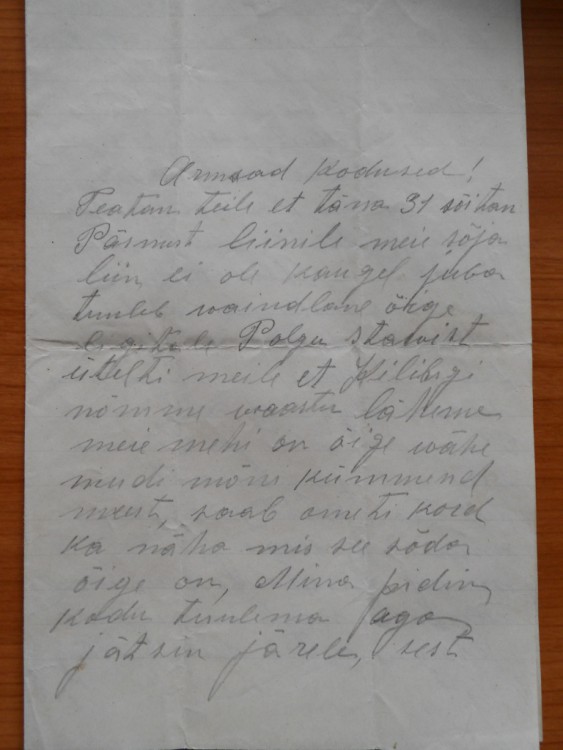 Armsad kodused!
Teatan teile et täna 31 sõitan
Pärnust liinile meie sõja
liin ei ole kaugel juba
tuleb waindlane õige
ligitale Polgu stawist
üteldi meile et Kilingi
nõmme waastu läheme
meie mehi on õige wähe
muidi mõni kümmend
meest, saab ometi kord
ka näha mis see sõda
õige on, Mina pidin
kodu tulema aga
jätsin järele, sest